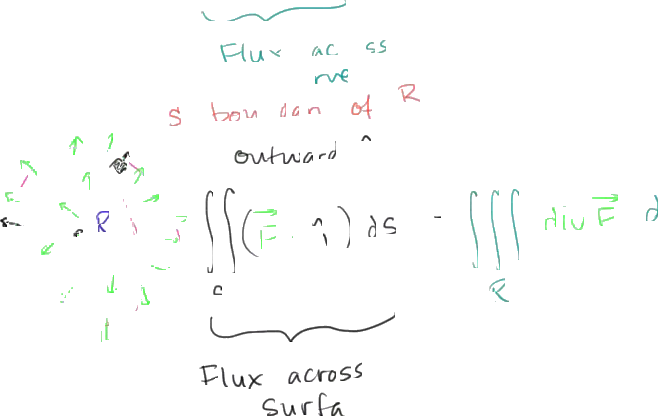 Flux ac ss
rve
S boundan of R
outward ^
R
∬(F⃗ · ^) dS - ∭ div F⃗ d
R
Flux across
surfa